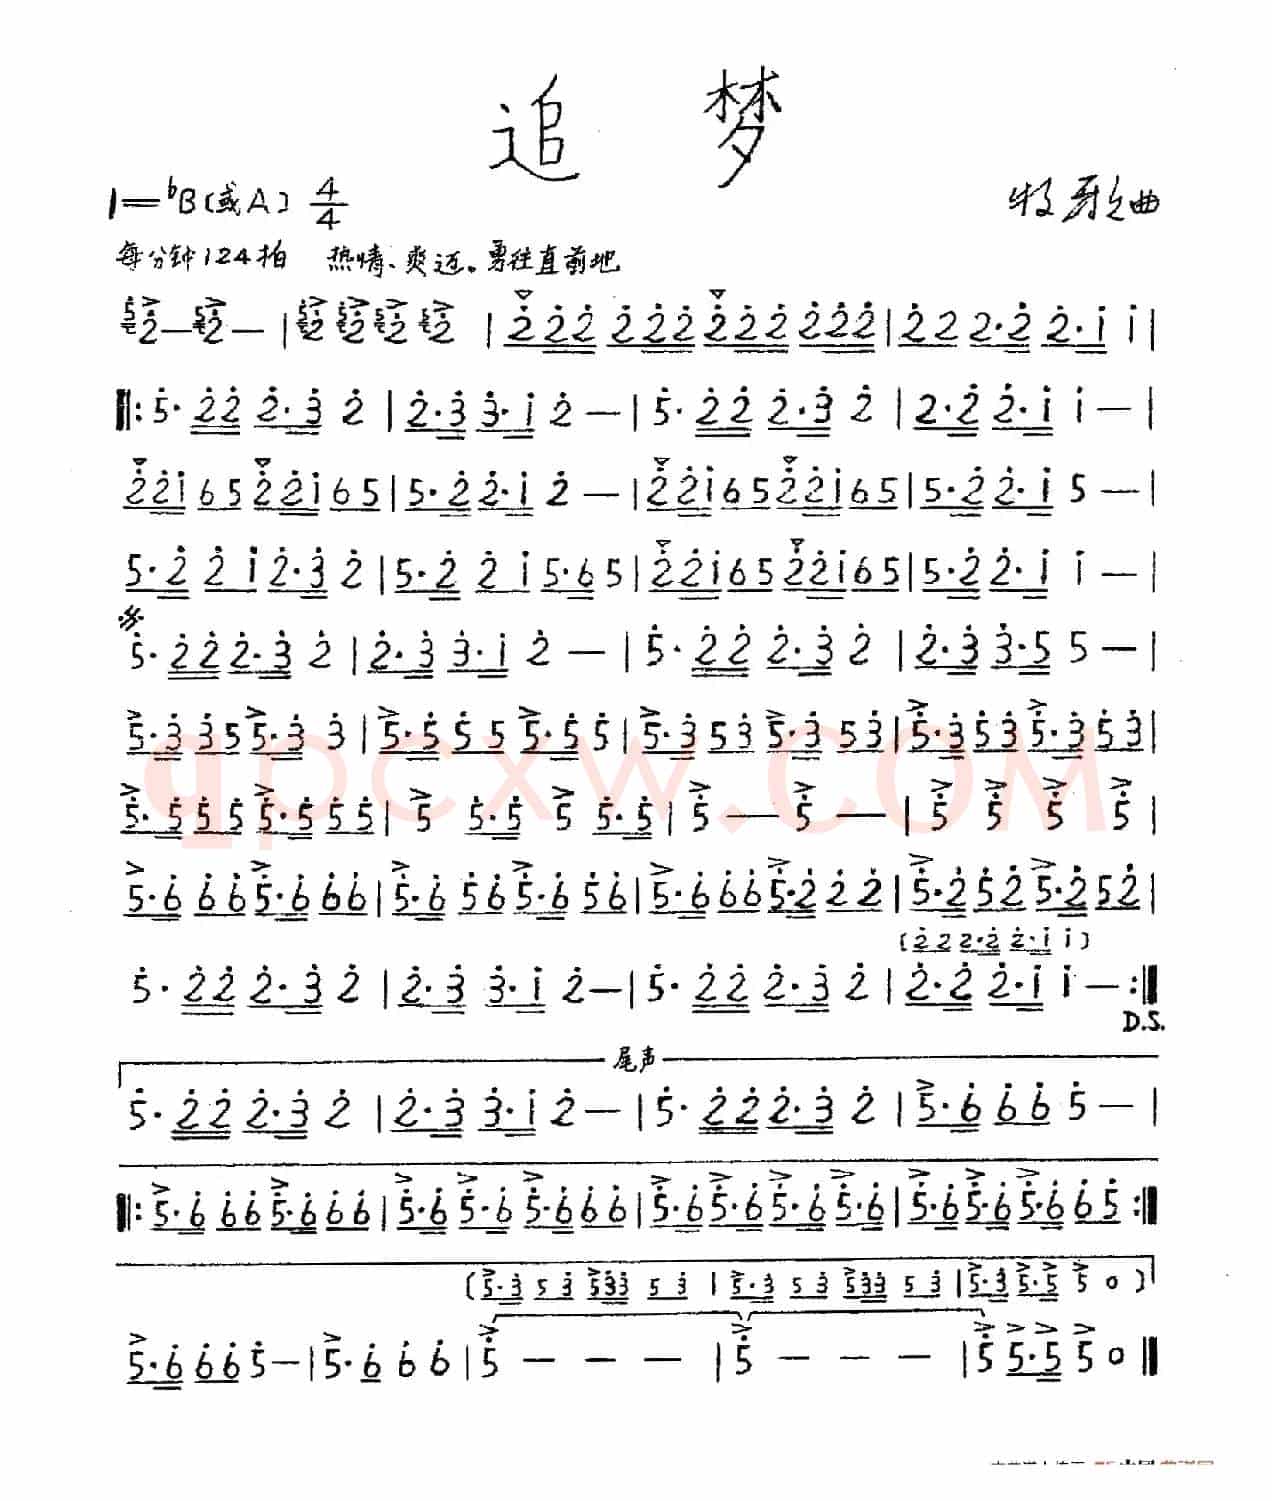 追 梦
1=♭B(或A) 4/4
牧歌曲
每分钟124拍 热情、爽迈。勇往直前地
2̇ — 2̇ — | 2̇ 2̇ 2̇ 2̇ | 2̇2̇2̇ 2̇2̇2̇ 2̇2̇2̇ 2̇2̇2̇ | 2̇2 2·2̇ 2̇·1̇ 1̇ |
‖: 5̇· 2̇2̇ 2̇·3̇ 2̇ | 2̇·3̇ 3̇·1̇ 2̇ — | 5̇· 2̇2̇ 2̇·3̇ 2̇ | 2·2̇ 2̇·1̇ 1̇ — |
2̇2̇1̇ 65 2̇2̇1̇ 65 | 5·2̇ 2̇·1̇ 2̇ — | 2̇2̇1̇ 65 2̇2̇1̇ 65 | 5·2̇ 2̇·1̇ 5 — |
5·2̇ 2̇1̇ 2̇·3̇ 2̇ | 5·2̇ 2̇1̇ 5·6 5 | 2̇2̇1̇ 65 2̇2̇1̇ 65 | 5·2̇ 2̇·1̇ 1̇ — |
𝄋
5̇· 2̇2̇ 2̇·3̇ 2̇ | 2̇·3̇ 3̇·1̇ 2̇ — | 5̇· 2̇2̇ 2̇·3̇ 2̇ | 2̇·3̇ 3̇·5̇ 5 — |
5̇·3̇ 3̇5 5̇·3̇ 3̇ | 5̇·5̇ 5̇5 5̇·5̇ 5̇ | 5̇·3̇ 5̇3̇ 5̇·3̇ 5̇3̇ | 5̇·3̇ 5̇3̇ 5̇·3̇ 5̇3̇ |
5̇·5̇ 5̇5̇ 5̇·5̇ 5̇5̇ | 5̇ 5̇·5̇ 5̇ 5̇·5̇ | 5̇ — 5̇ — | 5̇ 5̇ 5̇ 5̇ |
5̇·6̇ 6̇6̇ 5̇·6̇ 6̇6̇ | 5̇·6̇ 5̇6̇ 5̇·6̇ 5̇6̇ | 5̇·6̇ 6̇6̇ 5̇·2̇ 2̇2̇ | 5̇·2̇ 5̇2̇ 5̇·2̇ 5̇2̇ |
(2̇2 2·2̇ 2̇·1̇ 1̇)
5̇· 2̇2̇ 2̇·3̇ 2̇ | 2̇·3̇ 3̇·1̇ 2̇ — | 5̇· 2̇2̇ 2̇·3̇ 2̇ | 2̇·2̇ 2̇·1̇ 1̇ — :‖
D.S.
尾声
5̇· 2̇2̇ 2̇·3̇ 2̇ | 2̇·3̇ 3̇·1̇ 2̇ — | 5̇· 2̇2̇ 2̇·3̇ 2̇ | 5̇·6̇ 6̇6̇ 5̇ — |
‖: 5̇·6̇ 6̇6̇ 5̇·6̇ 6̇6̇ | 5̇·6̇ 5̇·6̇ 5̇·6̇ 6̇6̇ | 5̇·6̇ 5̇·6̇ 5̇·6̇ 5̇·6̇ | 5̇·6̇ 5̇·6̇ 5̇·6̇ 6̇5̇ :‖
(5̇·3̇ 5 3̇ 5̇3̇3̇ 5 3̇ | 5̇·3̇ 5 3̇ 5̇3̇3̇ 5 3̇ | 5̇·3̇ 5̇·5̇ 5̇ 0)
5̇·6̇ 6̇6̇ 5̇ — | 5̇·6̇ 6̇ 6̇ | 5̇ — — — | 5̇ — — — | 5̇ 5·5 5 0 ‖
qpcxw.COM